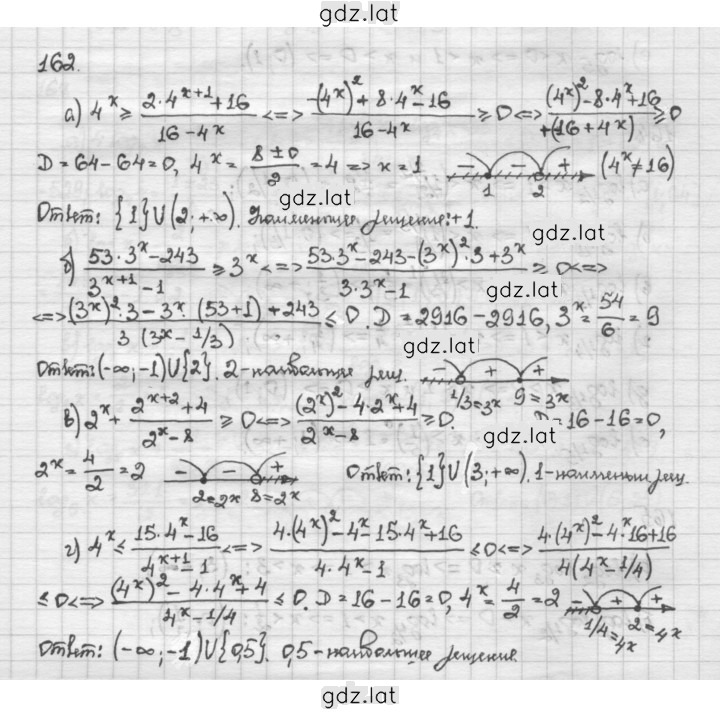 gdz.lat
162.
а) 4^x ≥ (2·4^(x+1)+16)/(16-4^x) <=> (-(4^x)^2+8·4^x-16)/(16-4^x) ≥ 0 <=> ((4^x)^2-8·4^x+16)/(+(16+4^x)) ≥ 0
D = 64-64=0, 4^x = (8±0)/2 = 4 => x = 1 - - + 1 2 (4^x≠16)
gdz.lat
Ответ: {1}∪(2;+∞). Наименьшее решение: +1.
gdz.lat
б) (53·3^x-243)/(3^(x+1)-1) ≥ 3^x <=> (53·3^x-243-(3^x)^2·3+3^x)/(3·3^x-1) ≥ 0 <=>
gdz.lat
<=> ((3^x)^2·3-3^x·(53+1)+243)/(3(3^x-1/3)) ≤ 0. D = 2916-2916, 3^x = 54/6 = 9
gdz.lat
Ответ: (-∞;-1)∪{2}. 2-наибольшее реш. - + + 1/3=3^x 9=3^x
в) 2^x + (2^(x+2)+4)/(2^x-8) ≥ 0 <=> ((2^x)^2-4·2^x+4)/(2^x-8) ≥ 0. D=16-16=0,
gdz.lat
2^x = 4/2 = 2 - - + 2=2^x 8=2^x Ответ: {1}∪(3;+∞). 1-наименьш реш.
г) 4^x ≤ (15·4^x-16)/(4^(x+1)-1) <=> (4·(4^x)^2-4^x-15·4^x+16)/(4·4^x-1) ≤ 0 <=> (4·(4^x)^2-4^x·16+16)/(4(4^x-1/4))
≤ 0 <=> ((4^x)^2-4·4^x+4)/(4^x-1/4) ≤ 0. D = 16-16=0, 4^x = 4/2 = 2 - + + 1/4=4^x 2=4^x
Ответ: (-∞;-1)∪{0,5}. 0,5-наибольшее решение.
gdz.lat